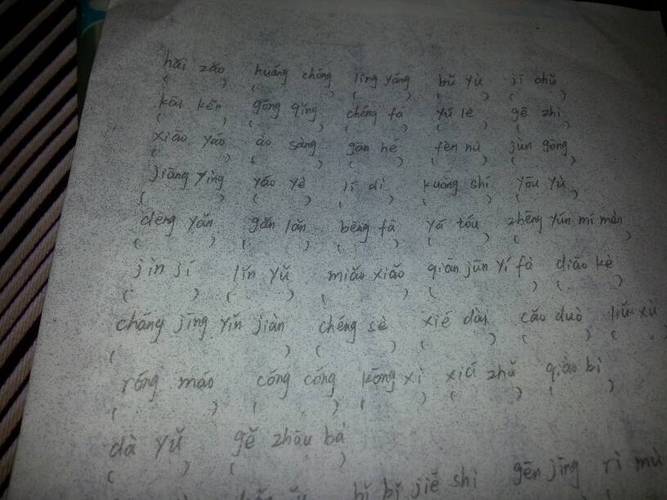 hǎi zǎo huáng chóng líng yáng bǔ yù jī chǔ
( ) ( ) ( ) ( ) ( )
kāi kěn gōng qīng chéng fá yú lè gē zhì
( ) ( ) ( ) ( ) ( )
xiāo yáo ào sàng gān hé fèn nù jūn gōng
( ) ( ) ( ) ( ) ( )
jiāng yìng yáo yè lí dì kuàng shí yōu yù
( ) ( ) ( ) ( ) ( )
dēng yán gǎn lǎn bēng fā yá tóu zhēng yún mí màn
( ) ( ) ( ) ( ) ( )
jīn jí lín yǔ miǎo xiǎo qiān jūn yí fà diāo kè
( ) ( ) ( ) ( ) (
cháng jīng yǐn jiàn chéng sè xié dài cāo duò liǔ xù
( ) ( ) ( ) ( ) (
róng máo cóng cóng kōng xì xiá zhǔ qiào bì
( ) ( ) ( ) ( ) ( )
dà yǔ gě zhōu bà
( ) ( )
bǐ bǐ jiē shì gēn jīng rì mù